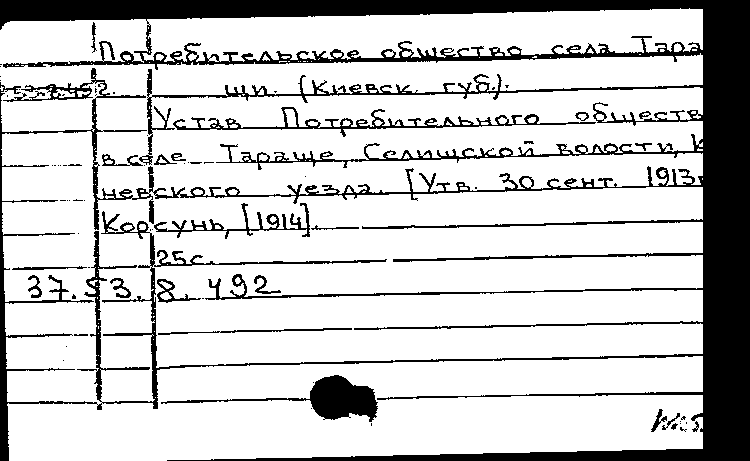 Потребительское общество села Тара
щи. (Киевск. губ.).
Устав Потребительного обществ
в селе Тараще, Селищской волости, К
невского уезда. [Утв. 30 сент. 1913г
Корсунь, [1914].
25с.
37.53.8.492